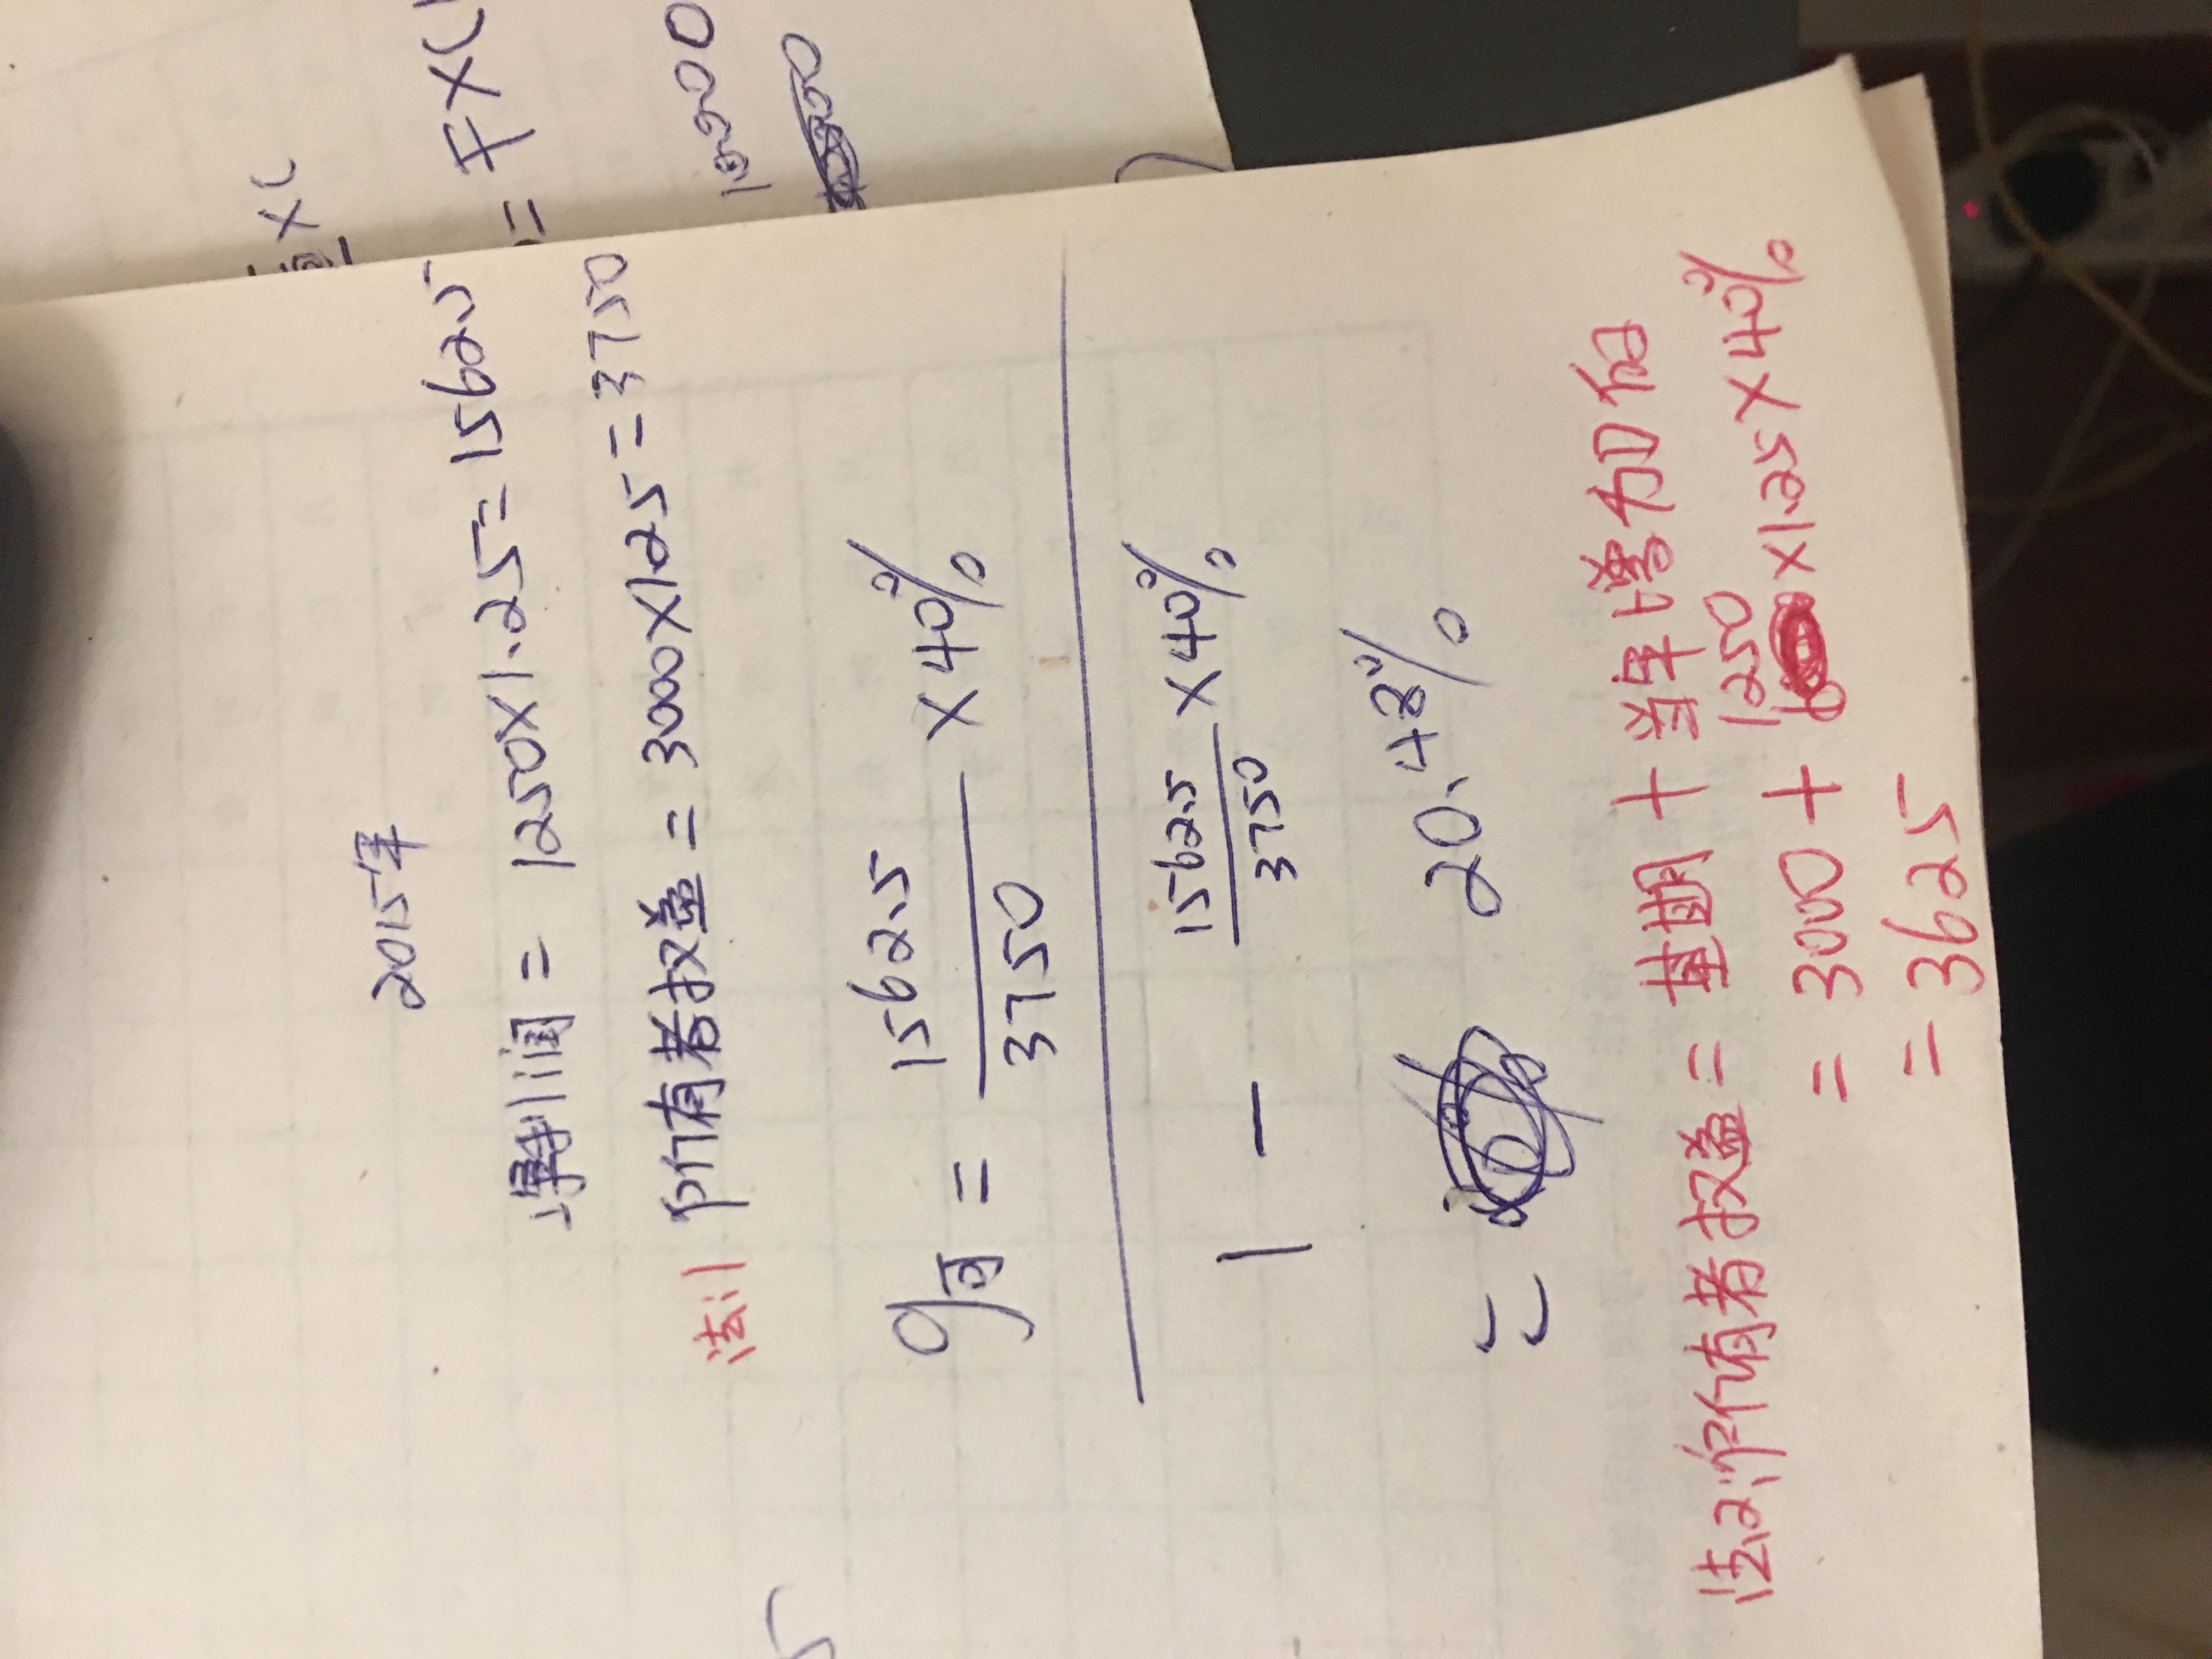 2015年
净利润 = 1250×1.25=1562.5
法1 所有者权益 = 3000×1.25=3750
g可 = 1562.5/3750 ×40%
1 - 1562.5/3750 ×40%
= 20.48%
法2:所有者权益 = 基期+当年增加的
= 3000+1250×1.25×40%
= 3625
×(
=F×(1
10000
5